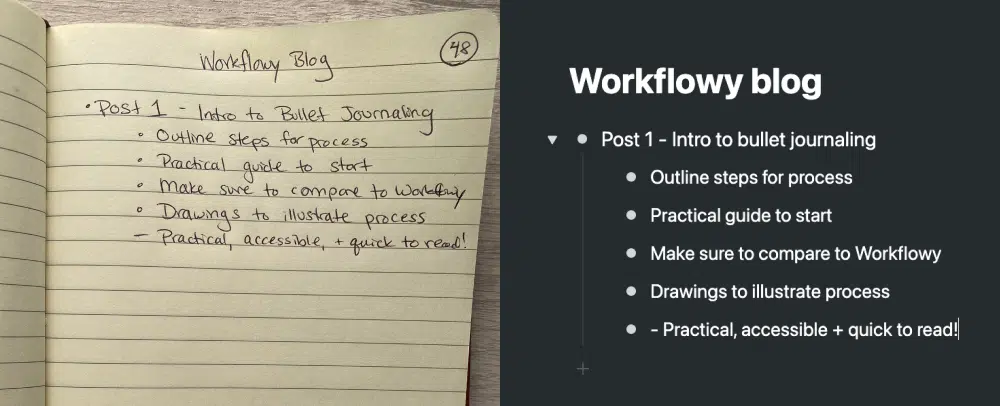 Workflowy Blog
48
• Post 1 - Intro to Bullet Journaling
• Outline steps for process
• Practical guide to start
• Make sure to compare to Workflowy
• Drawings to illustrate process
– Practical, accessible, + quick to read!
Workflowy blog
• Post 1 - Intro to bullet journaling
• Outline steps for process
• Practical guide to start
• Make sure to compare to Workflowy
• Drawings to illustrate process
• - Practical, accessible + quick to read!